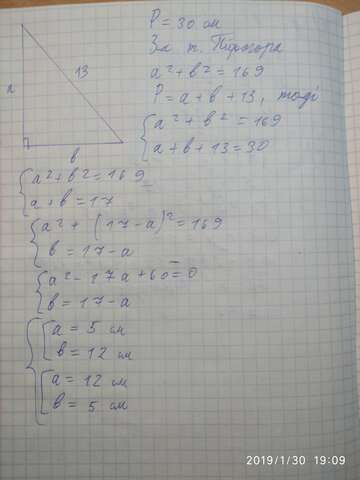 P = 30 см
За т. Піфагора
a² + b² = 169
P = a + b + 13, тоді
{ a² + b² = 169
a + b + 13 = 30
a
13
b
{ a² + b² = 169
a + b = 17
{ a² + (17 - a)² = 169
b = 17 - a
{ a² - 17a + 60 = 0
b = 17 - a
{ [ a = 5 см
b = 12 см
[ a = 12 см
b = 5 см
2019/1/30 19:09